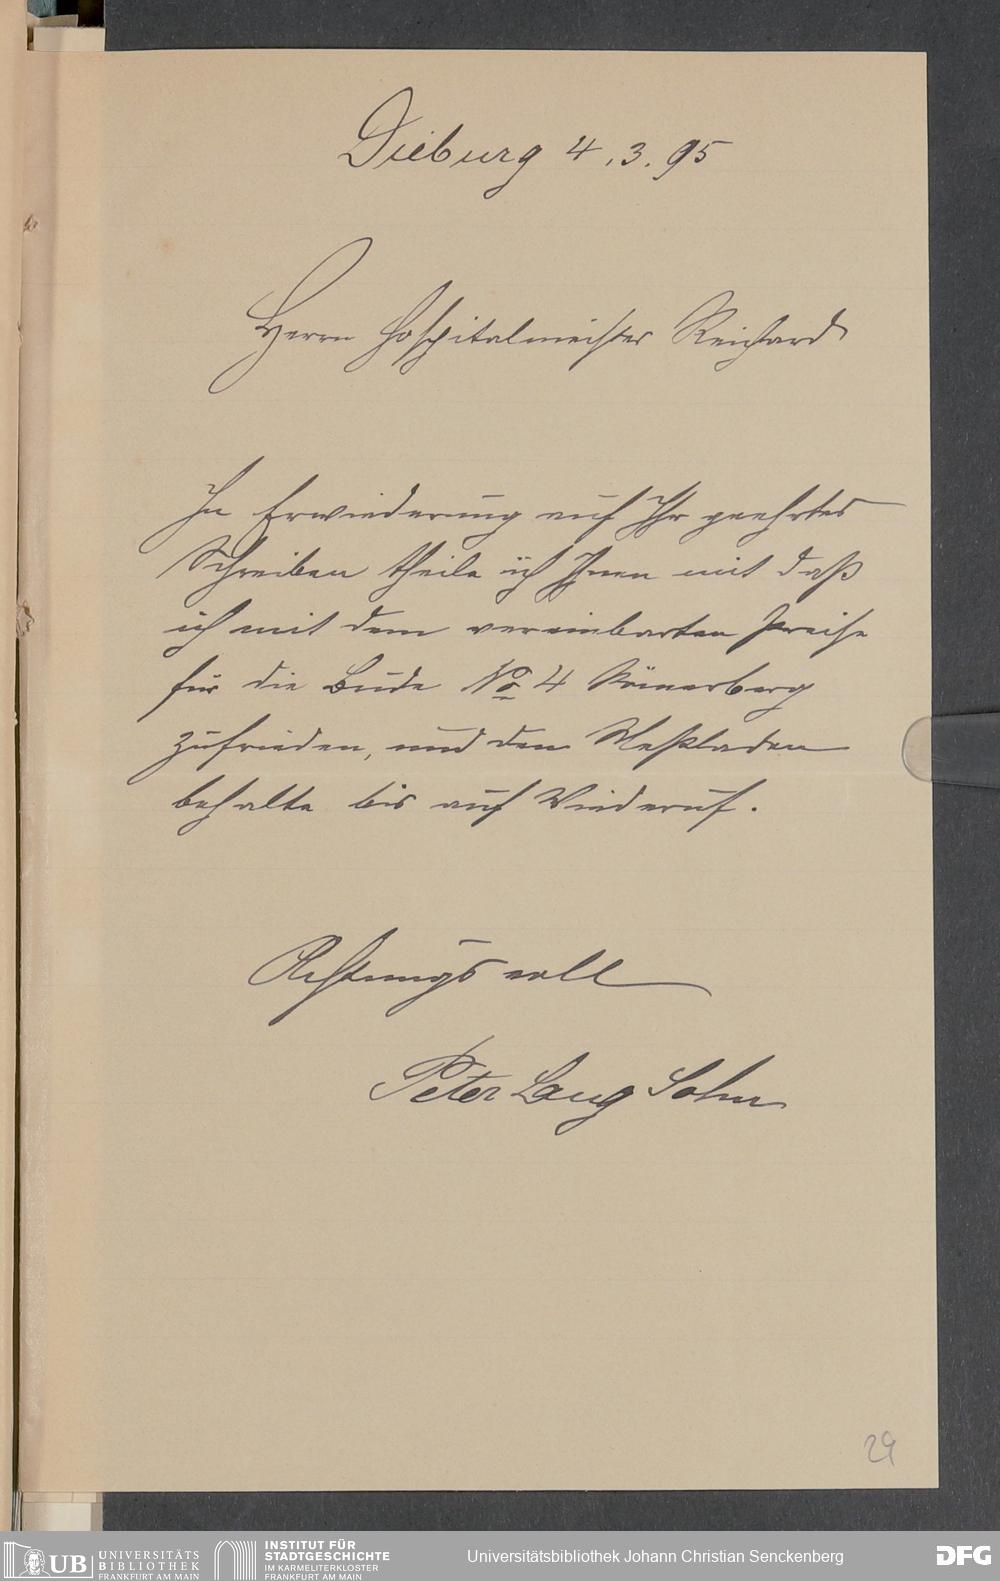 Dieburg 4.3.95
Herrn Hospitalmeister Reichard
In Erwiederung auf Ihr geehrtes
Schreiben theile ich Ihnen mit daß
ich mit dem vereinbarten Preise
für die Bude No 4 Römerberg
zufrieden, und den Meßladen
behalte bis auf Wiederuf.
Achtungsvoll
Peter Lang Sohn
29
UB UNIVERSITÄTS
BIBLIOTHEK
FRANKFURT AM MAIN
INSTITUT FÜR
STADTGESCHICHTE
IM KARMELITERKLOSTER
FRANKFURT AM MAIN
Universitätsbibliothek Johann Christian Senckenberg
DFG